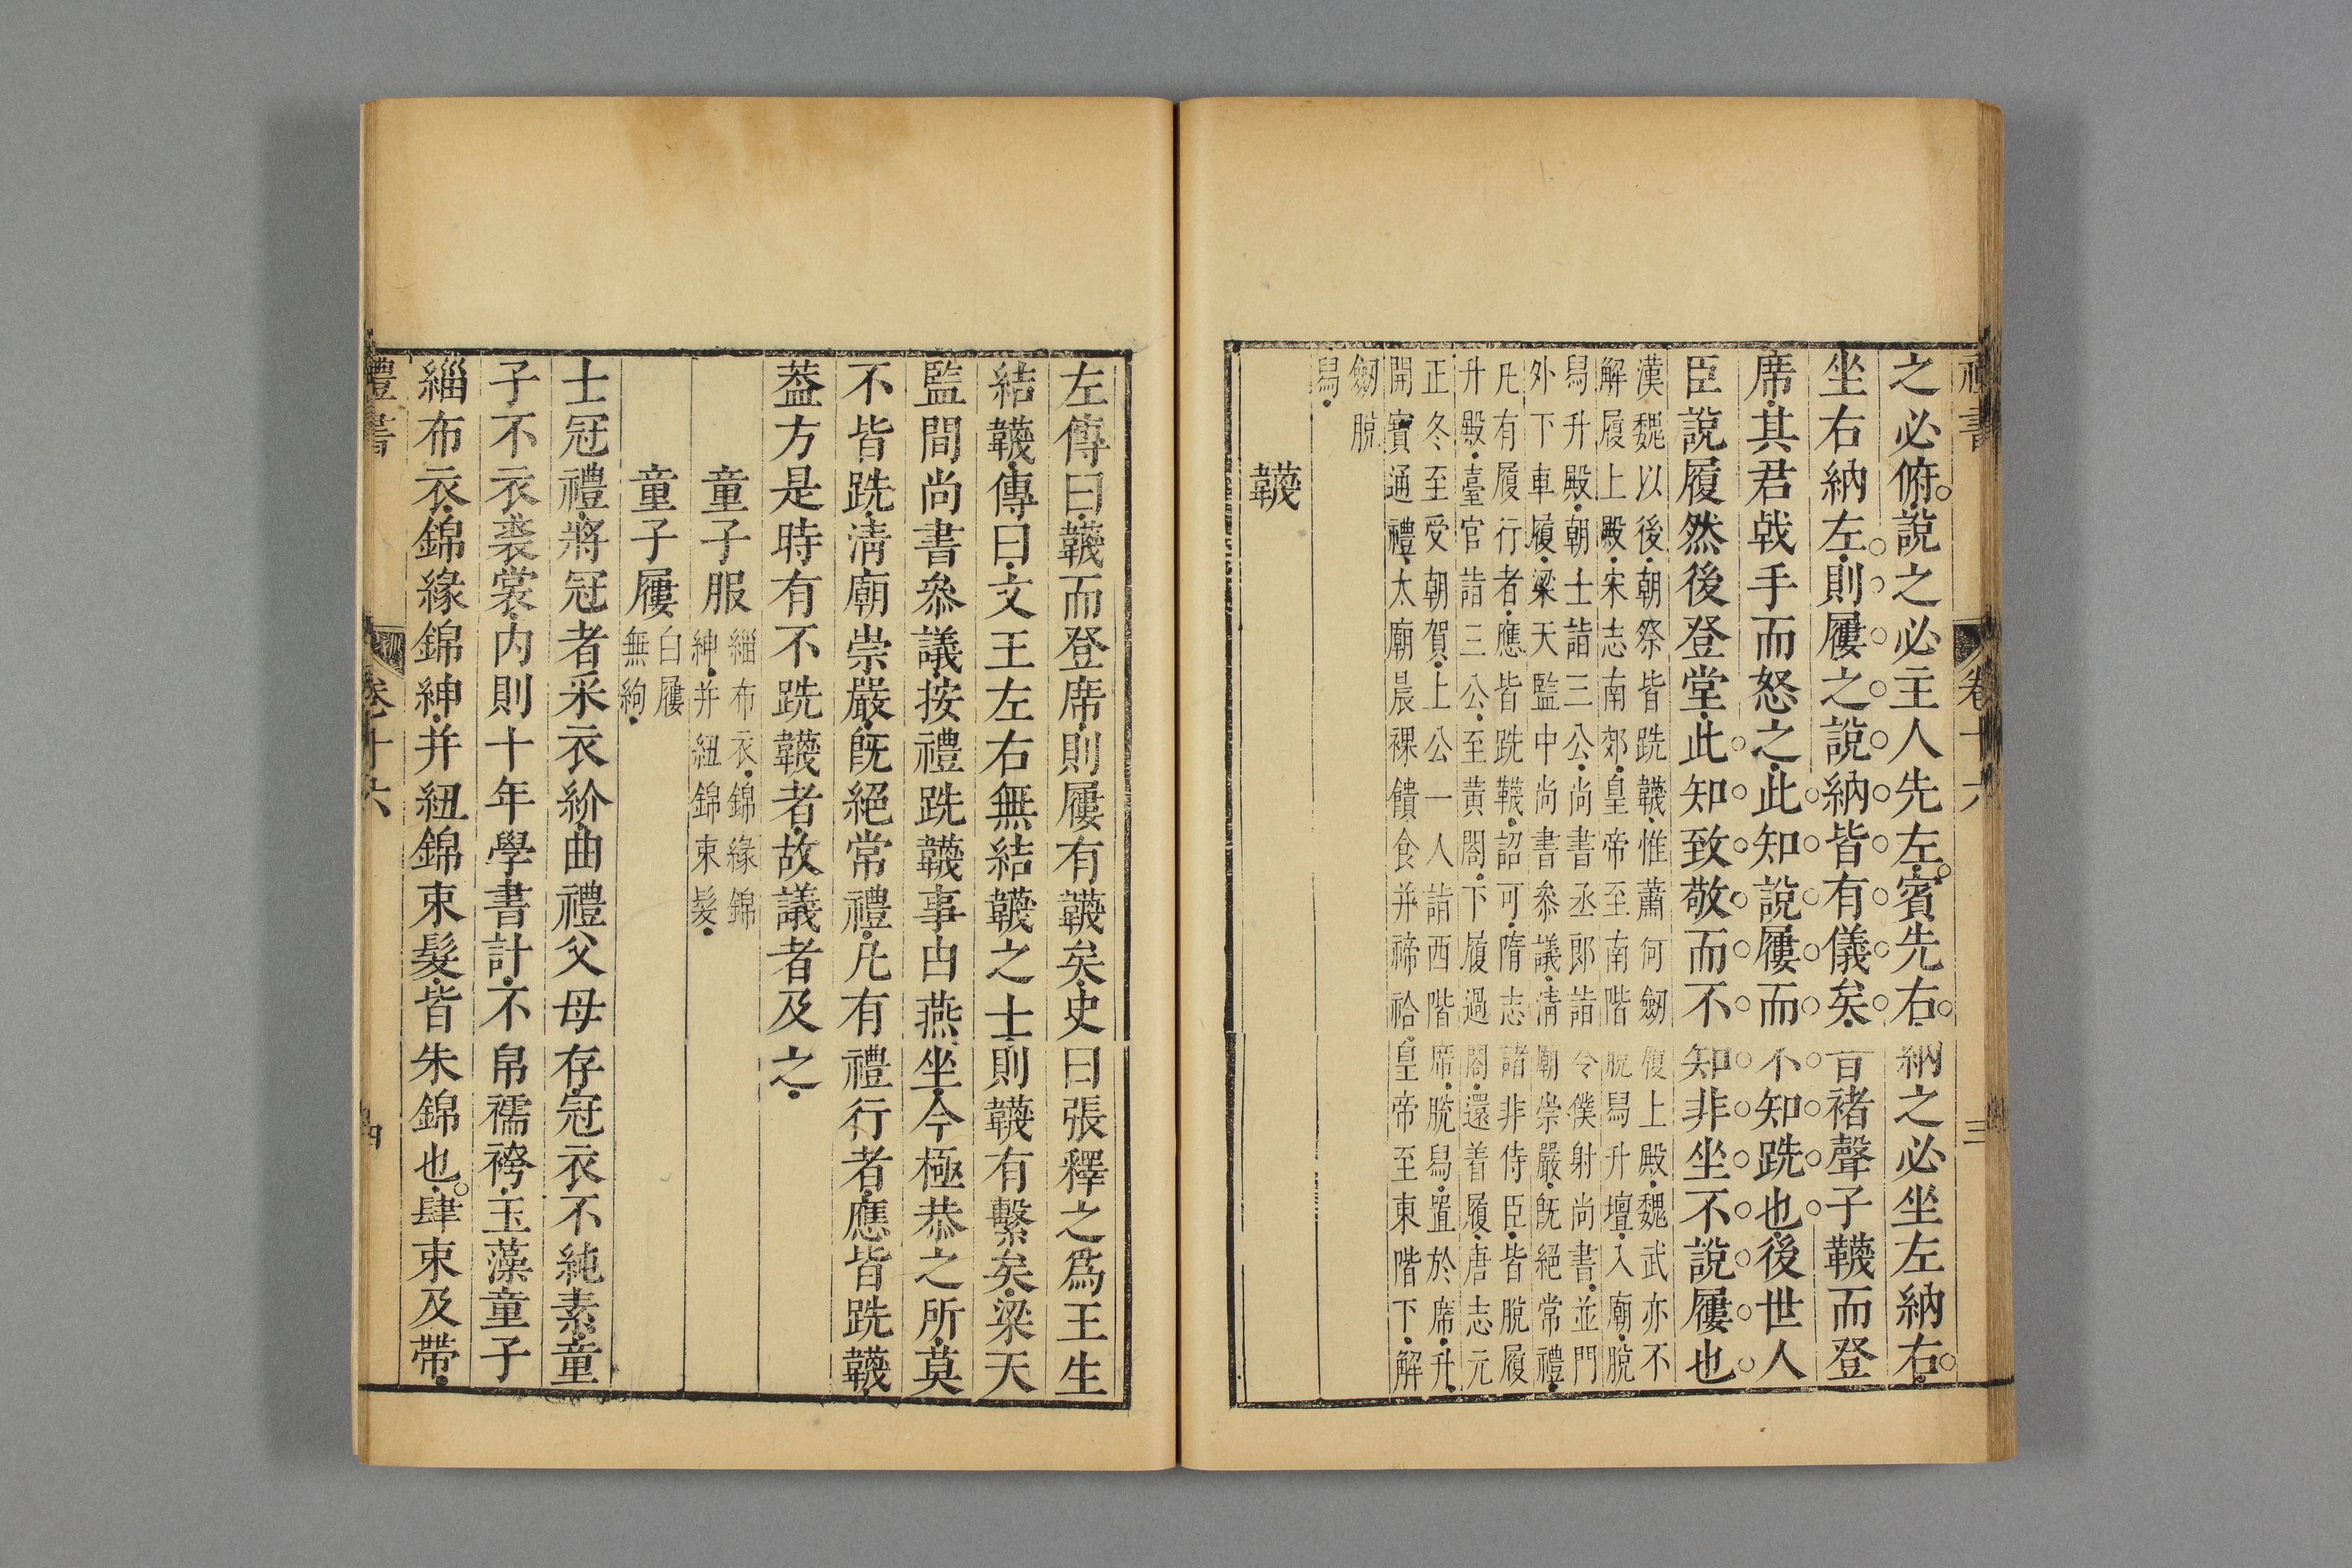 禮書
卷十六
三
之必俯說之必主人先左賓先右納之必坐左納右
坐右納左則屨之說納皆有儀矣昔褚聲子韤而登
席其君戟手而怒之此知說屨而不知跣也後世人
臣說履然後登堂此知致敬而不知非坐不說屨也
漢魏以後朝祭皆跣韤惟蕭何劒履上殿魏武亦不
解履上殿宋志南郊皇帝至南階脫舄升壇入廟脫
舄升殿朝士詣三公尚書丞郎詣令僕射尚書並門
外下車履梁天監中尚書叅議清廟崇嚴旣絕常禮
凡有履行者應皆跣韤詔可隋志諸非侍臣皆脫履
升殿臺官詣三公至黃閤下履過閤還著履唐志元
正冬至受朝賀上公一人詣西階席脫舄置於席升
開寶通禮太廟晨祼饋食并禘祫皇帝至東階下解
劒脫
舄
韤
左傳曰韤而登席則屨有韤矣史曰張釋之爲王生
結韤傳曰文王左右無結韤之士則韤有繫矣梁天
監間尚書叅議按禮跣韤事由燕坐今極恭之所莫
不皆跣清廟崇嚴旣絕常禮凡有禮行者應皆跣韤
葢方是時有不跣韤者故議者及之
童子服
緇布衣錦緣錦
紳并紐錦束髮
童子屨
白屨
無絇
士冠禮將冠者采衣紒曲禮父母存冠衣不純素童
子不衣裘裳内則十年學書計不帛襦袴玉藻童子
緇布衣錦緣錦紳并紐錦束髮皆朱錦也肆束及帶
禮書
卷十六
四